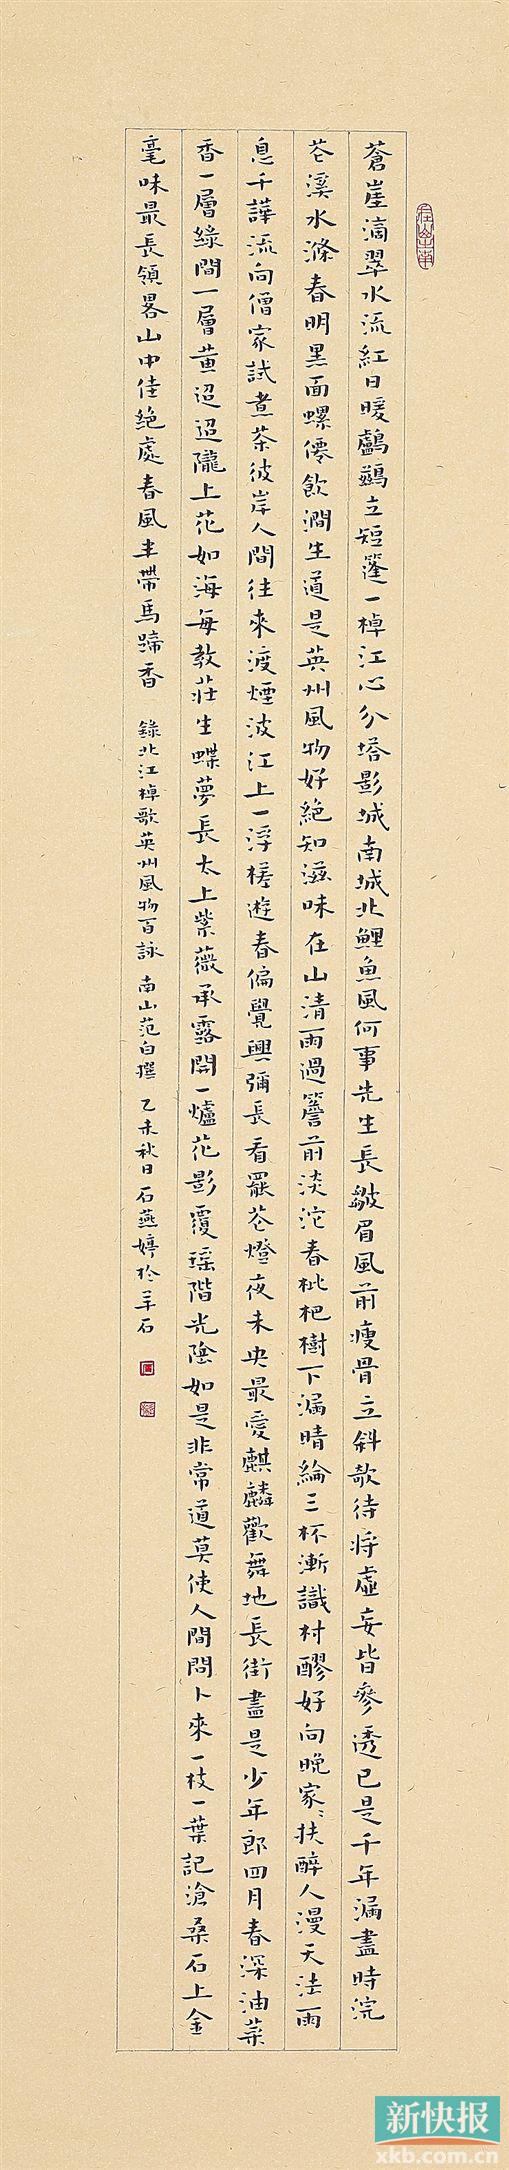 蒼崖滴翠水流紅日暖鸕鷀立短篷一棹江心分塔影城南城北鯉魚風何事先生長皺眉風前瘦骨立斜欹待將虛妄皆參透已是千年漏盡時浣
花溪水滌春明黑面螺僊飲澗生道是英州風物好絕知滋味在山清雨過簷前淡沱春枇杷樹下漏晴綸三杯漸識村醪好向晚家〻扶醉人漫天法雨
息千譁流向僧家試煮茶彼岸人間往來渡煙波江上一浮槎遊春偏覺興彌長看罷花燈夜未央最愛麒麟歡舞地長街盡是少年郎四月春深油菜
香一層綠間一層黃迢迢隴上花如海每教莊生蝶夢長太上紫薇承露開一爐花影覆瑤階光陰如是非常道莫使人間問卜來一枝一葉記滄桑石上金
毫味最長領畧山中佳絕處春風半帶馬蹄香 錄北江棹歌英州風物百詠 南山范白撰 乙未秋日石燕婷於羊石
新快报
xkb.com.cn